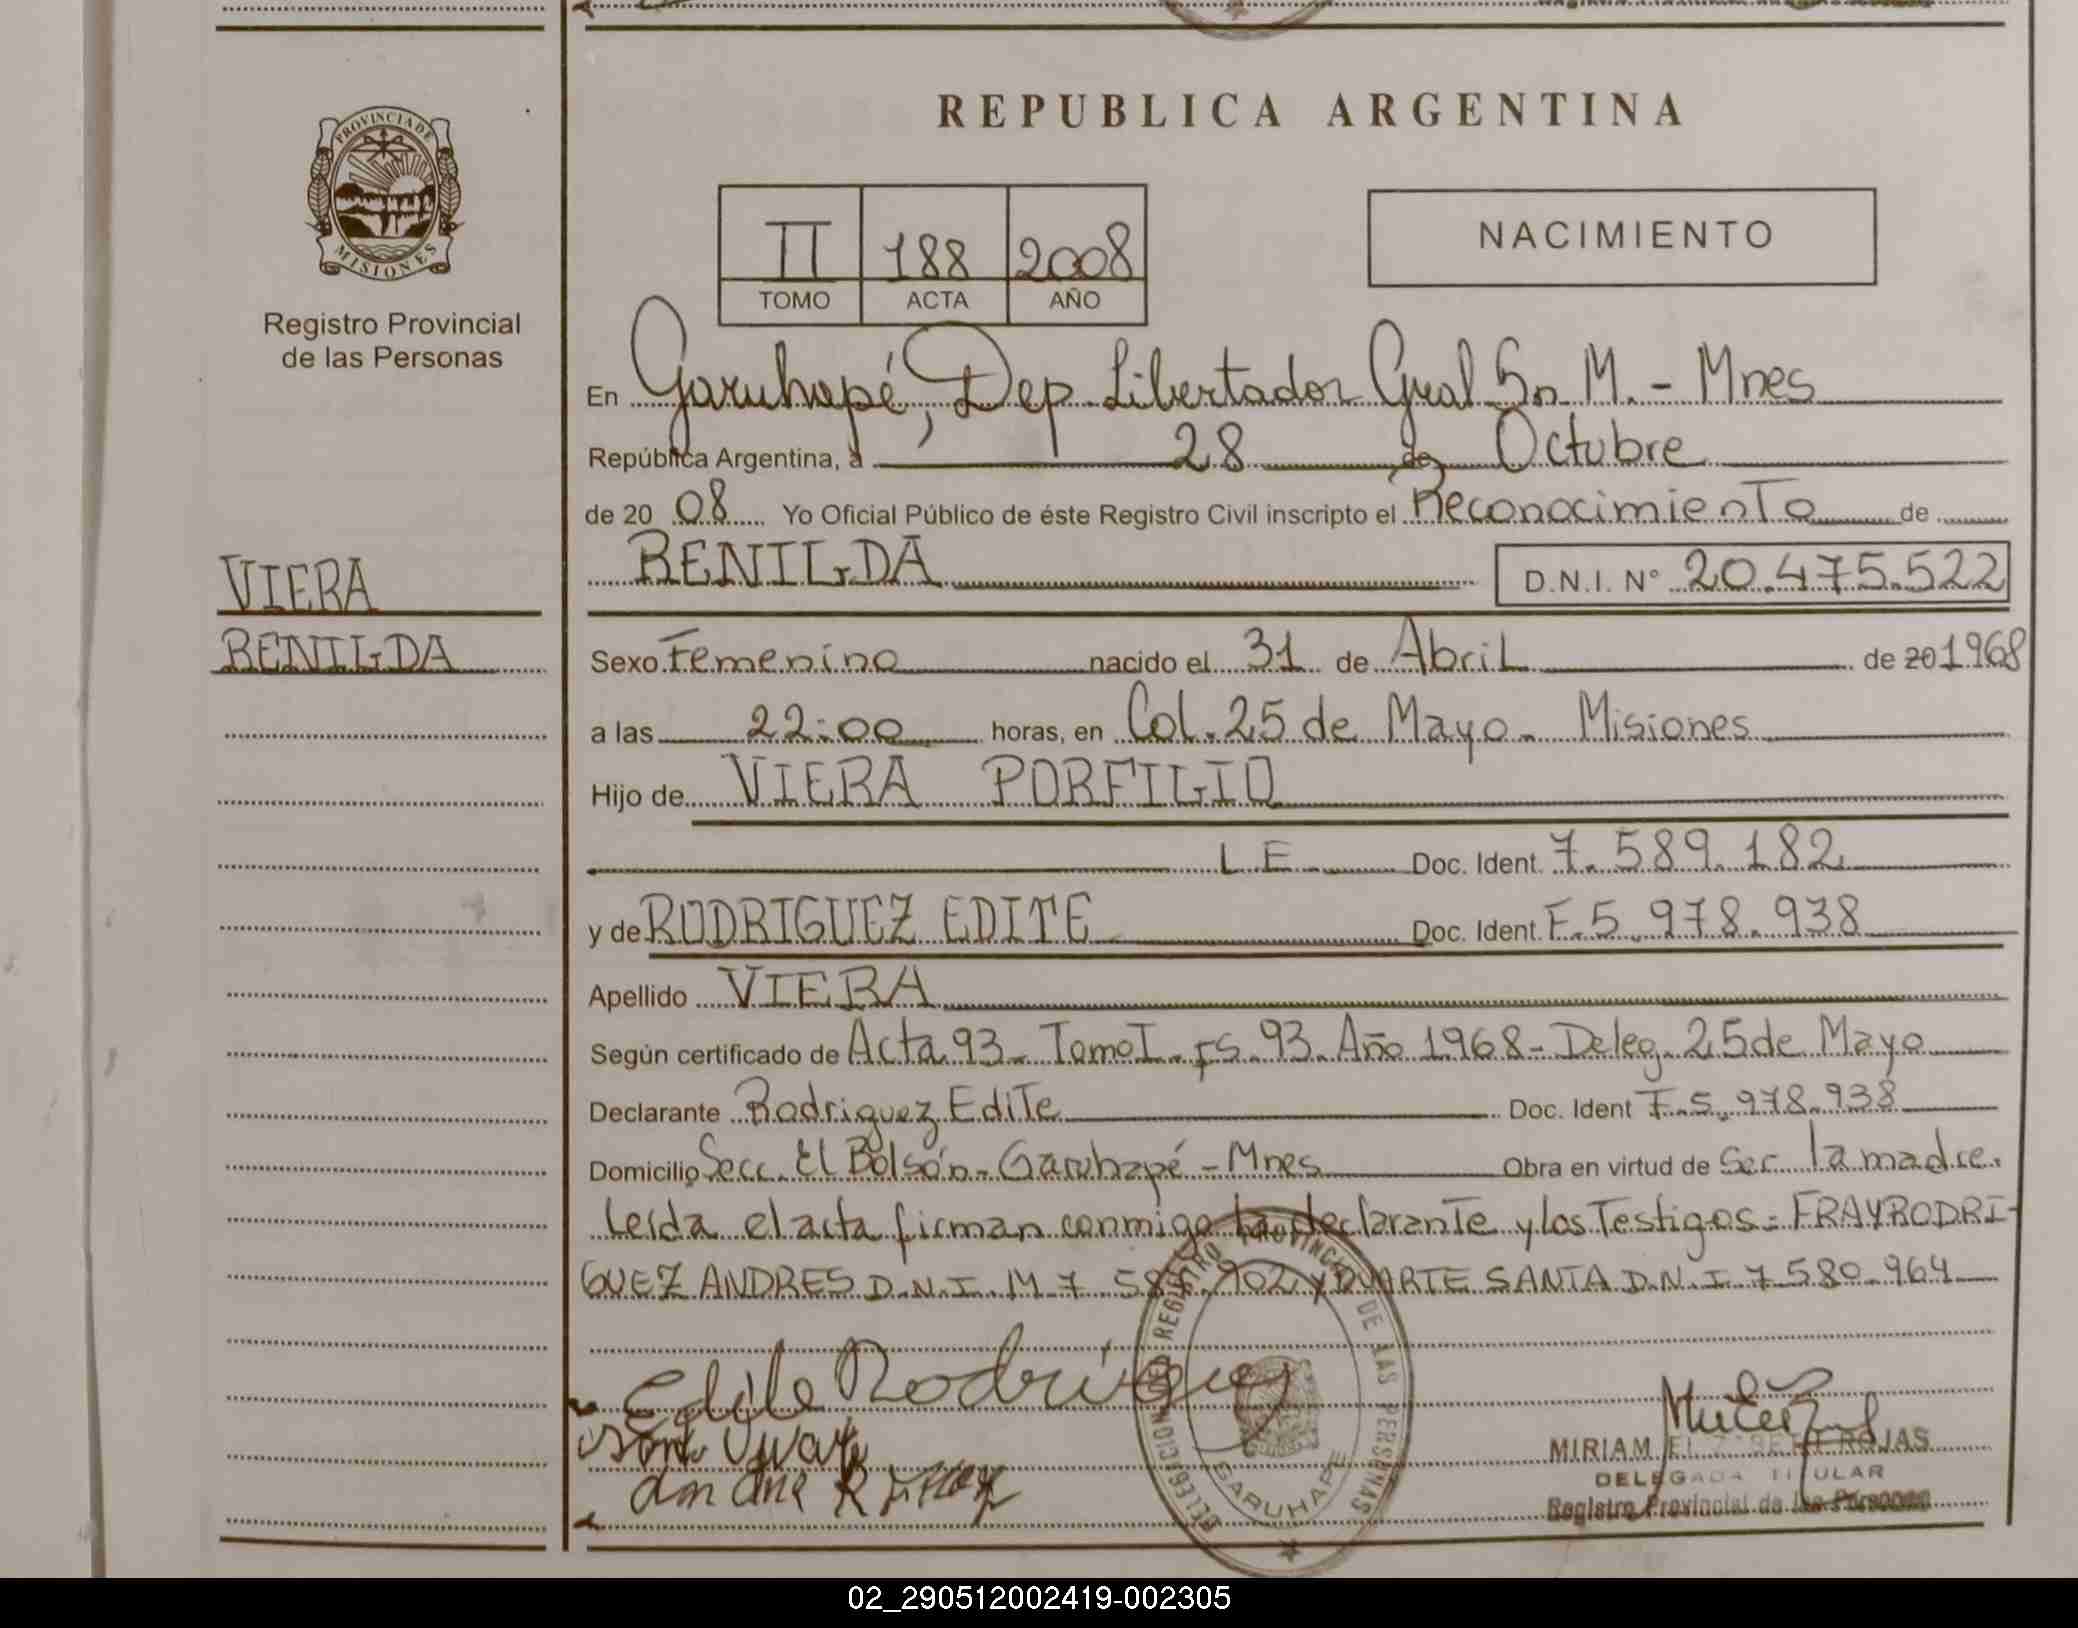 REPUBLICA ARGENTINA
PROVINCIA DE
MISIONES
Registro Provincial
de las Personas
II 188 2008
TOMO ACTA AÑO
NACIMIENTO
En Garuhapé, Dep Libertador Gral Sn M. - Mnes
República Argentina, a 28 de Octubre
de 20 08 Yo Oficial Público de éste Registro Civil inscripto el Reconocimiento de
RENILDA D.N.I. Nº 20.475.522
VIERA
RENILDA
Sexo Femenino nacido el 31 de Abril de 20 1968
a las 22:00 horas, en Col. 25 de Mayo - Misiones
Hijo de VIERA PORFILIO
L E Doc. Ident. 7.589.182
y de RODRIGUEZ EDITE Doc. Ident. F.5.978.938
Apellido VIERA
Según certificado de Acta 93 - Tomo I - Fs 93 - Año 1968 - Deleg. 25 de Mayo
Declarante Rodriguez Edite Doc. Ident F.5.978.938
Domicilio Secc. El Bolsón - Garuhapé - Mnes Obra en virtud de Ser la madre.
Leída el acta firman conmigo la declarante y los Testigos = FRAY RODRI-
GUEZ ANDRES D.N.I. M 7 902 y DUARTE SANTA D.N.I 7 580.964
Edite Rodriguez
DELEGACION REGISTRO PROVINCIAL DE LAS PERSONAS
GARUHAPE
MIRIAM ROJAS
DELEGADA TITULAR
Registro Provincial de las Personas
02_290512002419-002305